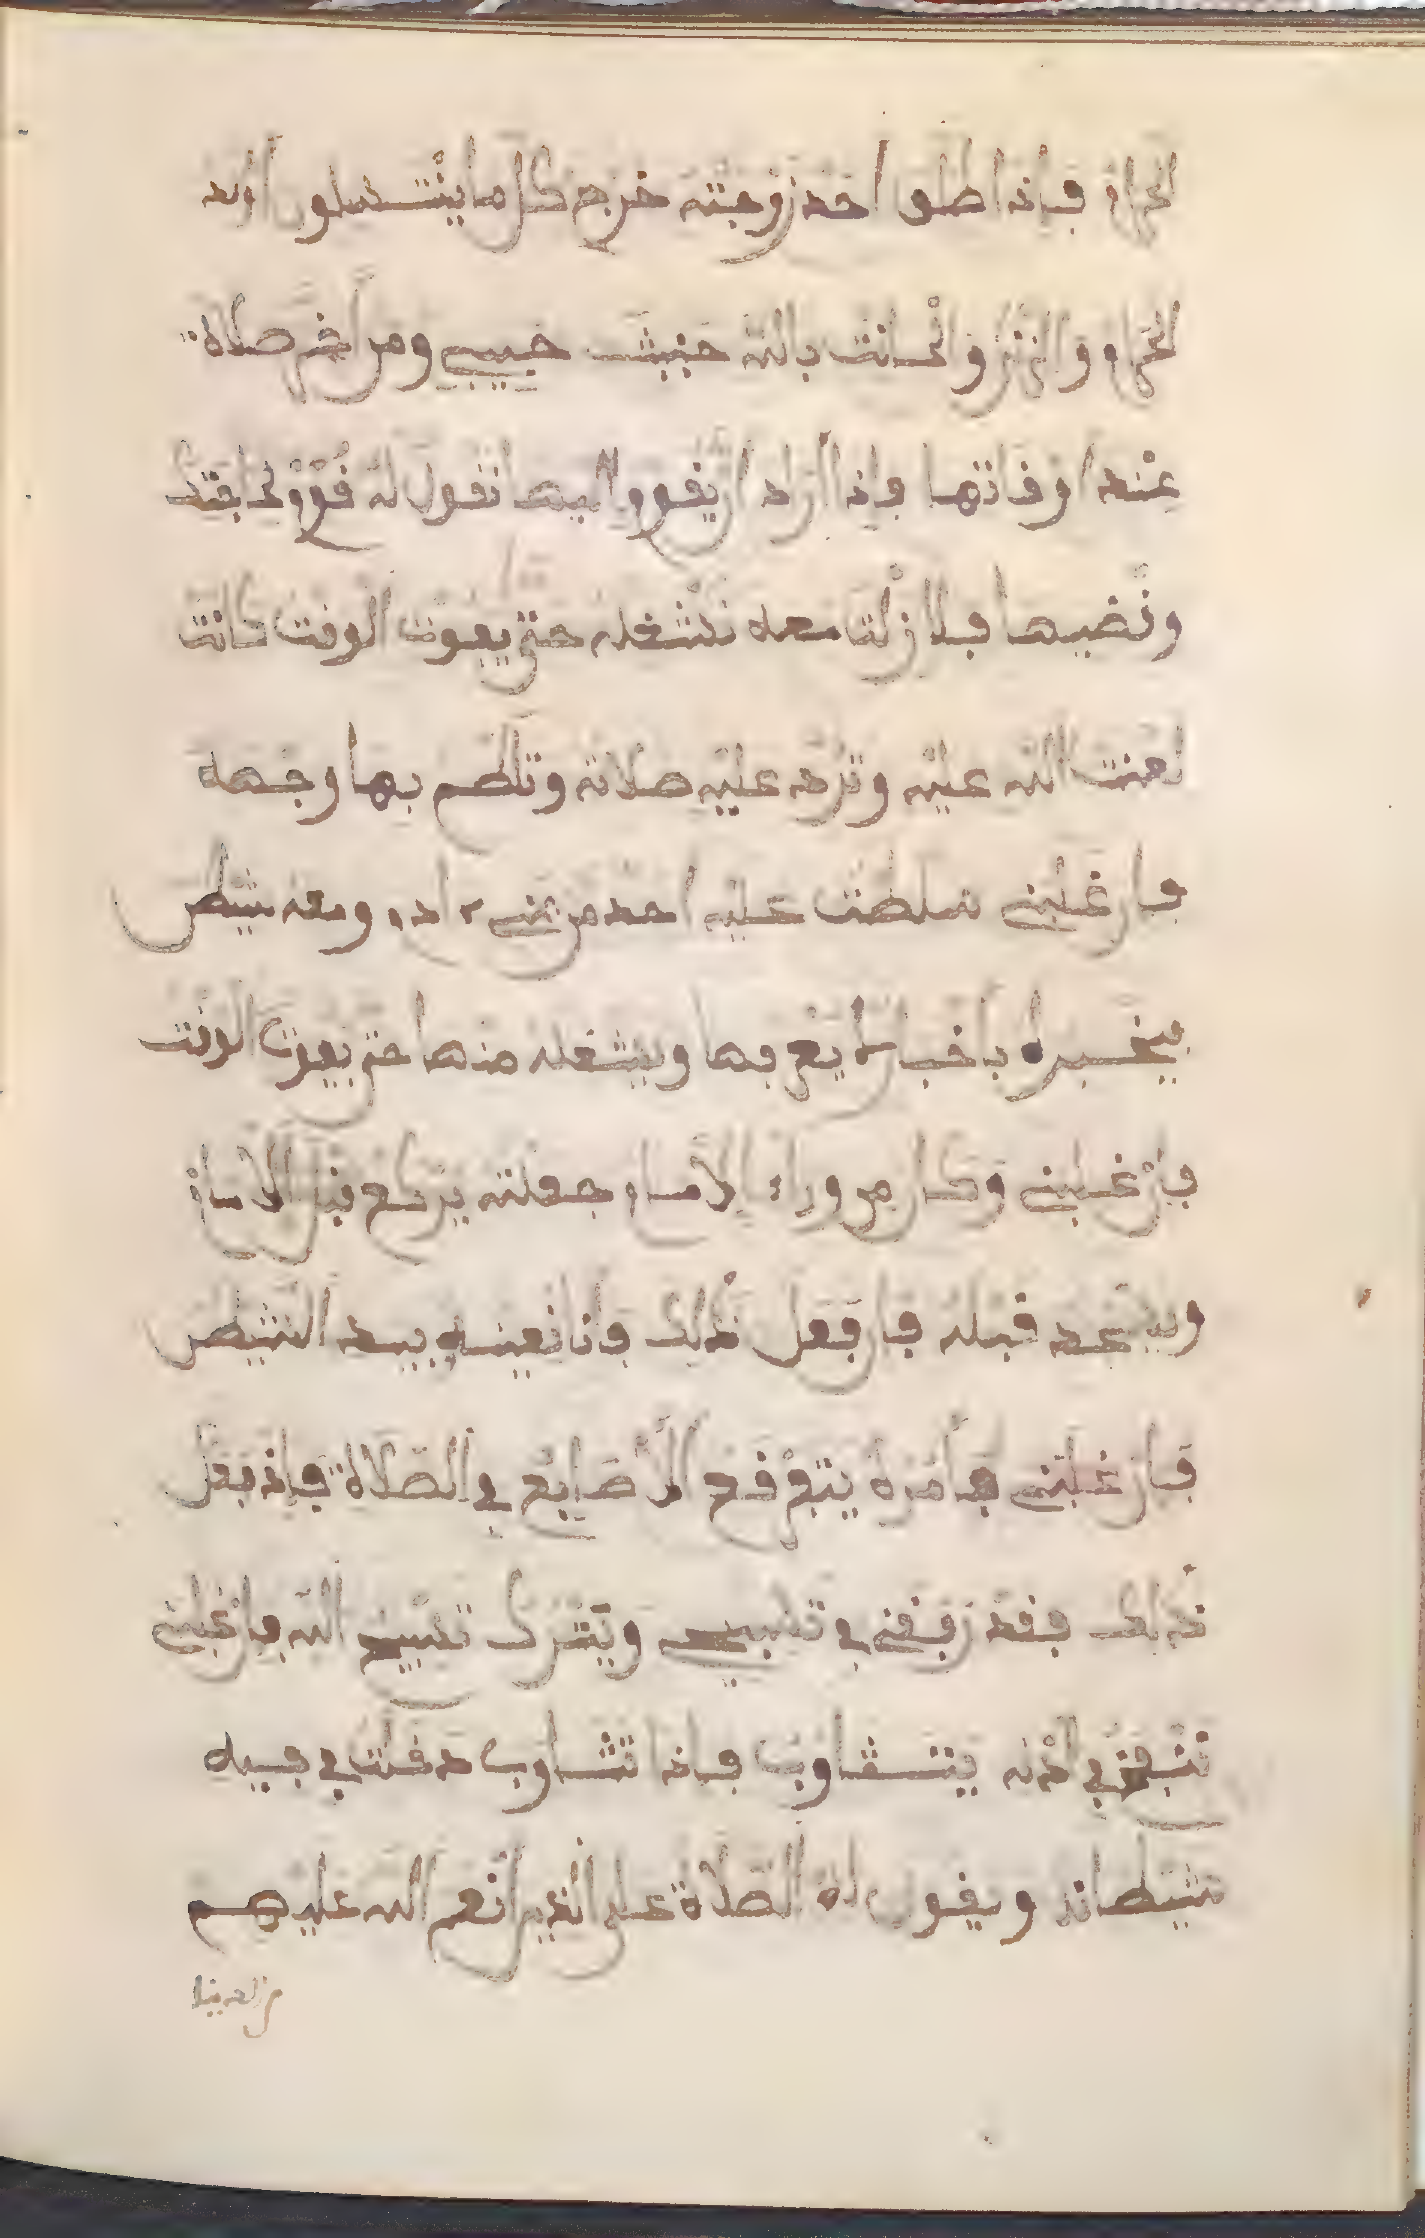 الحرام فإذا طلق احد زوجته خرج كل ما يتنسلون أولاد
الحرام والزنا والحانث بالله حنيث حبيبي ومن أخر صلاة
عند اوقاتها وإذا أراد ان يقوم اليها نقول له قوم لحاجتك
ونقضيها فلا زلت معه نشغله حتى يفوت الوقت كانت
لعنت الله عليه وترد عليه صلاته وتلطم بها وجهه
فإن غلبني سلطت عليه احد من بني ءادم ومعه شيطن
يخبره بأخبار يفرح بها ويشغله منها حتى يفوت الوقت
فإن غلبني وكان من وراء الامام جعلته يركع قبل الامام
ويسجد قبله فإن فعل ذلك فأنا نعينه بيد الشيطن
فإن غلبني فأمره يتفرقع الأصابع في الصلاة فإذا فعل
ذلك فقد رفقني في تسبيحي ويترك تسبيح الله فإن غلبني
ننفخ في أذنه يتثاوب فإذا تثاوب دخلت في فيه
شيطانا ويقول له الصلاة على الذين أنعم الله عليهم
من الدنيا